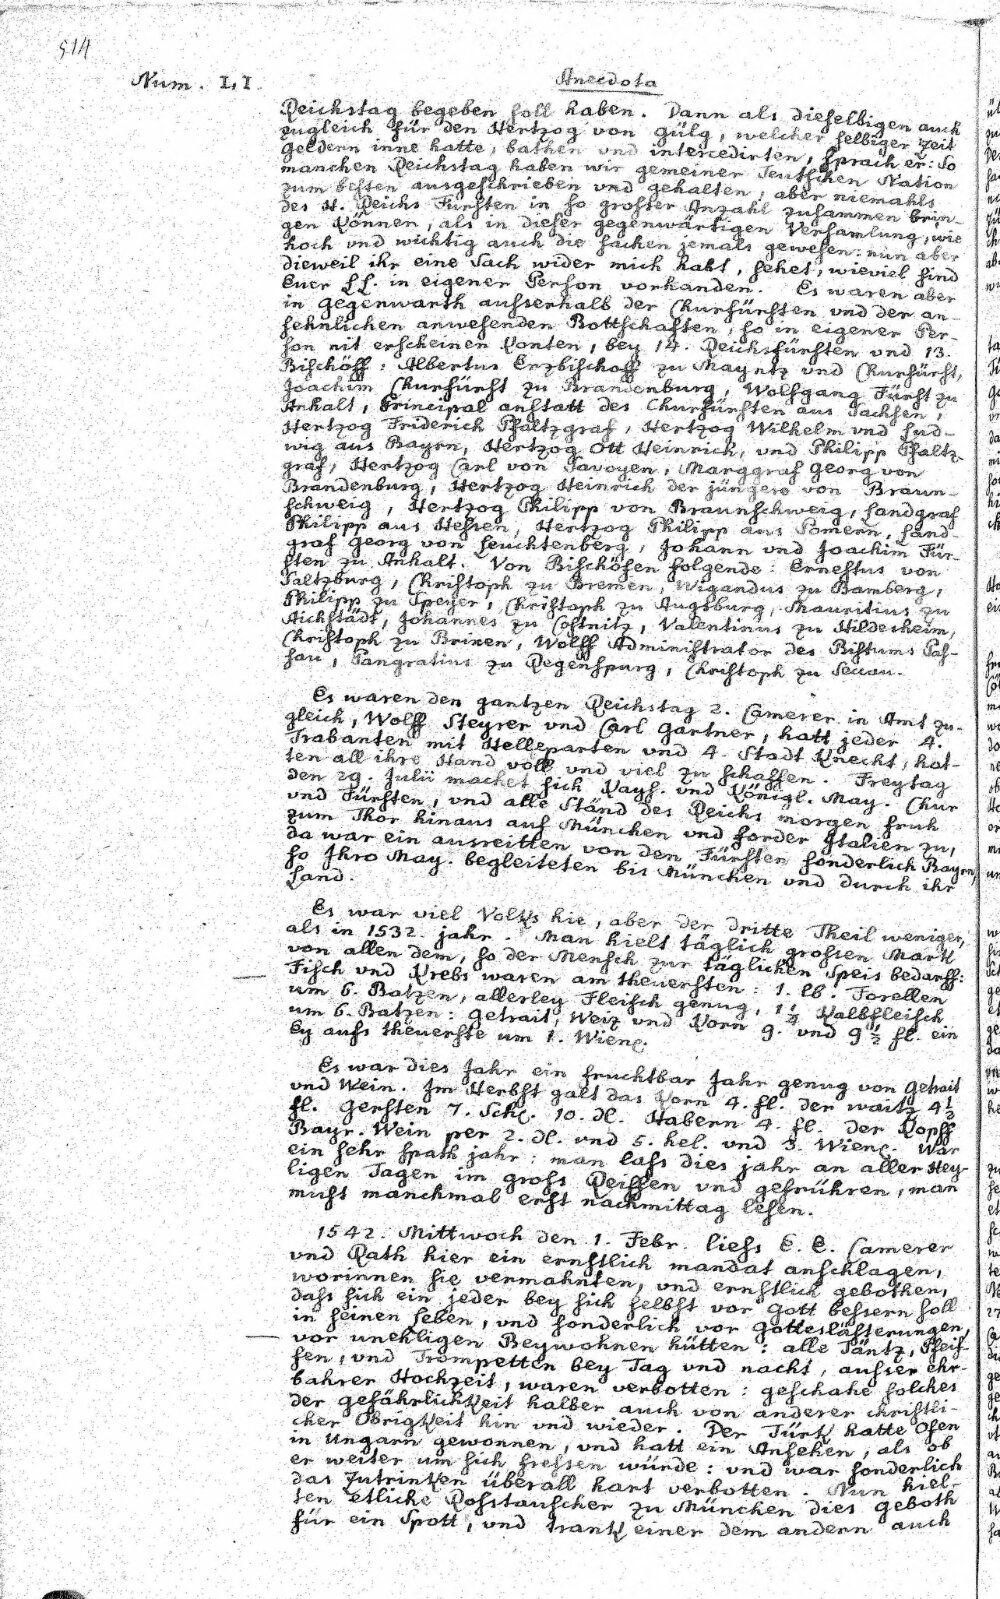 514
Num. I,I. Anecdota
Reichstag begeben soll haben. Dann als dieselbigen auch
zugleich für den Hertzog von Gülg, welcher selbiger Zeit
Geldern inne hatte, bathen vnd intercedirten, sprach er: So
manchen Reichstag haben wir gemeiner Teutschen Nation
zum besten ausgeschrieben vnd gehalten, aber niemahls
des H. Reichs Fürsten in so grosser Anzahl zusammen brin-
gen können, als in dieser gegenwärtigen Versamlung, wie
hoch vnd wichtig auch die sachen jemals gewesen: nun aber
dieweil ihr eine Sach wider mich habt, sehet, wieviel sind
Euer LL. in eigener Person vorhanden. Es waren aber
in Gegenwarth ausserhalb der Churfürsten vnd der an-
sehnlichen anwesenden Bottschafften, so in eigener Per-
son nit erscheinen konten, bey 14. Reichsfürsten vnd 13.
Bischöff: Albertus Erzbischoff zu Mayntz vnd Churfürst,
Joachim Churfürst zu Brandenburg, Wolfgang Fürst zu
Anhalt, Principal anstatt des Churfürsten aus Sachsen,
Hertzog Friderich Pfaltzgraf, Hertzog Wilhelm vnd Lud-
wig aus Bayrn, Hertzog Ott Heinrich, vnd Philipp Pfaltz-
graf, Hertzog Carl von Savoyen, Marggraf Georg von
Brandenburg, Hertzog Heinrich der jüngere von Braun-
schweig, Hertzog Philipp von Braunschweig, Landgraf
Philipp aus Hessen, Hertzog Philipp aus Pomern, Land-
graf Georg von Leuchtenberg, Johann vnd Joachim Für-
sten zu Anhalt. Von Bischöfen folgende: Ernestus von
Saltzburg, Christoph zu Bremen, Wigandus zu Bamberg,
Philipp zu Speyer, Christoph zu Augsburg, Mauritius zu
Aichstädt, Johannes zu Costnitz, Valentinus zu Hildesheim,
Christoph zu Brixen, Wolff Administrator des Bistums Pas-
sau, Pangratius zu Regenspurg, Christoph zu Seccau.
Es waren den gantzen Reichstag 2. Camerer in Amt zu-
gleich, Wolff Steyrer vnd Carl Gartner, hatt jeder 4.
Trabanten mit Helleparten vnd 4. Stadt Knecht, hat-
ten all ihre Hand voll vnd viel zu schaffen. Freytag
den 29. Julii machet sich Kays. vnd Königl. May. Chur
vnd Fürsten, vnd alle Ständ des Reichs morgen fruh
zum Thor hinaus auf München vnd forder Italien zu,
da war ein ausreitten von den Fürsten sonderlich Bayrn,
so Ihro May. begleiteten bis München vnd durch ihr
Land.
Es war viel Volks hie, aber der dritte Theil weniger,
als in 1532. jahr. Man hielt täglich grossen Markt
von allen dem, so der Mensch zur täglichen Speis bedarff:
Fisch vnd Krebs waren am theuersten: 1. lb. Forellen
um 6. Batzen, allerley Fleisch genug, 1 1/4 Kalbfleisch
um 6. Batzen: Getrait, Weiz vnd Korn 9. vnd 9 1/2 fl. ein
Ey aufs theuerste um 1. Wienr.
Es war dies Jahr ein fruchtbar Jahr genug von Getrait
vnd Wein. Im Herbst galt das Korn 4. fl. der waitz 4 1/2
fl. Gersten 7. Sch. 10. dl. Habern 4. fl. der Kopff
Bayr. Wein per 2. dl. vnd 5. hel. vnd 3. Wienr. War
ein sehr spath jahr: man lass dies jahr an aller Hey-
ligen Tagen im gross Reiffen vnd gefrühren, man
musst manchmal erst nachmittag lesen.
1542. Mittwoch den 1. Febr. liess E. E. Camerer
vnd Rath hier ein ernstlich mandat anschlagen,
worinnen sie vermahnten, vnd ernstlich gebothen,
dass sich ein jeder bey sich selbst vor Gott bessern soll
in seinen Leben, vnd sonderlich vor Gotteslästerungen,
vor unehligen Beywohnen hütten: alle Täntz, Pfeif-
fen, vnd Trompetten bey Tag vnd nacht, ausser ehr-
bahrer Hochzeit, waren verbotten: geschahe solches
der gefährlichkeit halber auch von anderer christli-
cher Obrigkeit hin vnd wieder. Der Türk hatte Ofen
in Ungarn gewonnen, vnd hatt ein Ansehen, als ob
er weiter um sich fressen würde: vnd war sonderlich
das Zutrinken überall hart verbotten. Nun hiel-
ten etliche Rosstauscher zu München dies geboth
für ein Spott, vnd trank einer dem andern auch